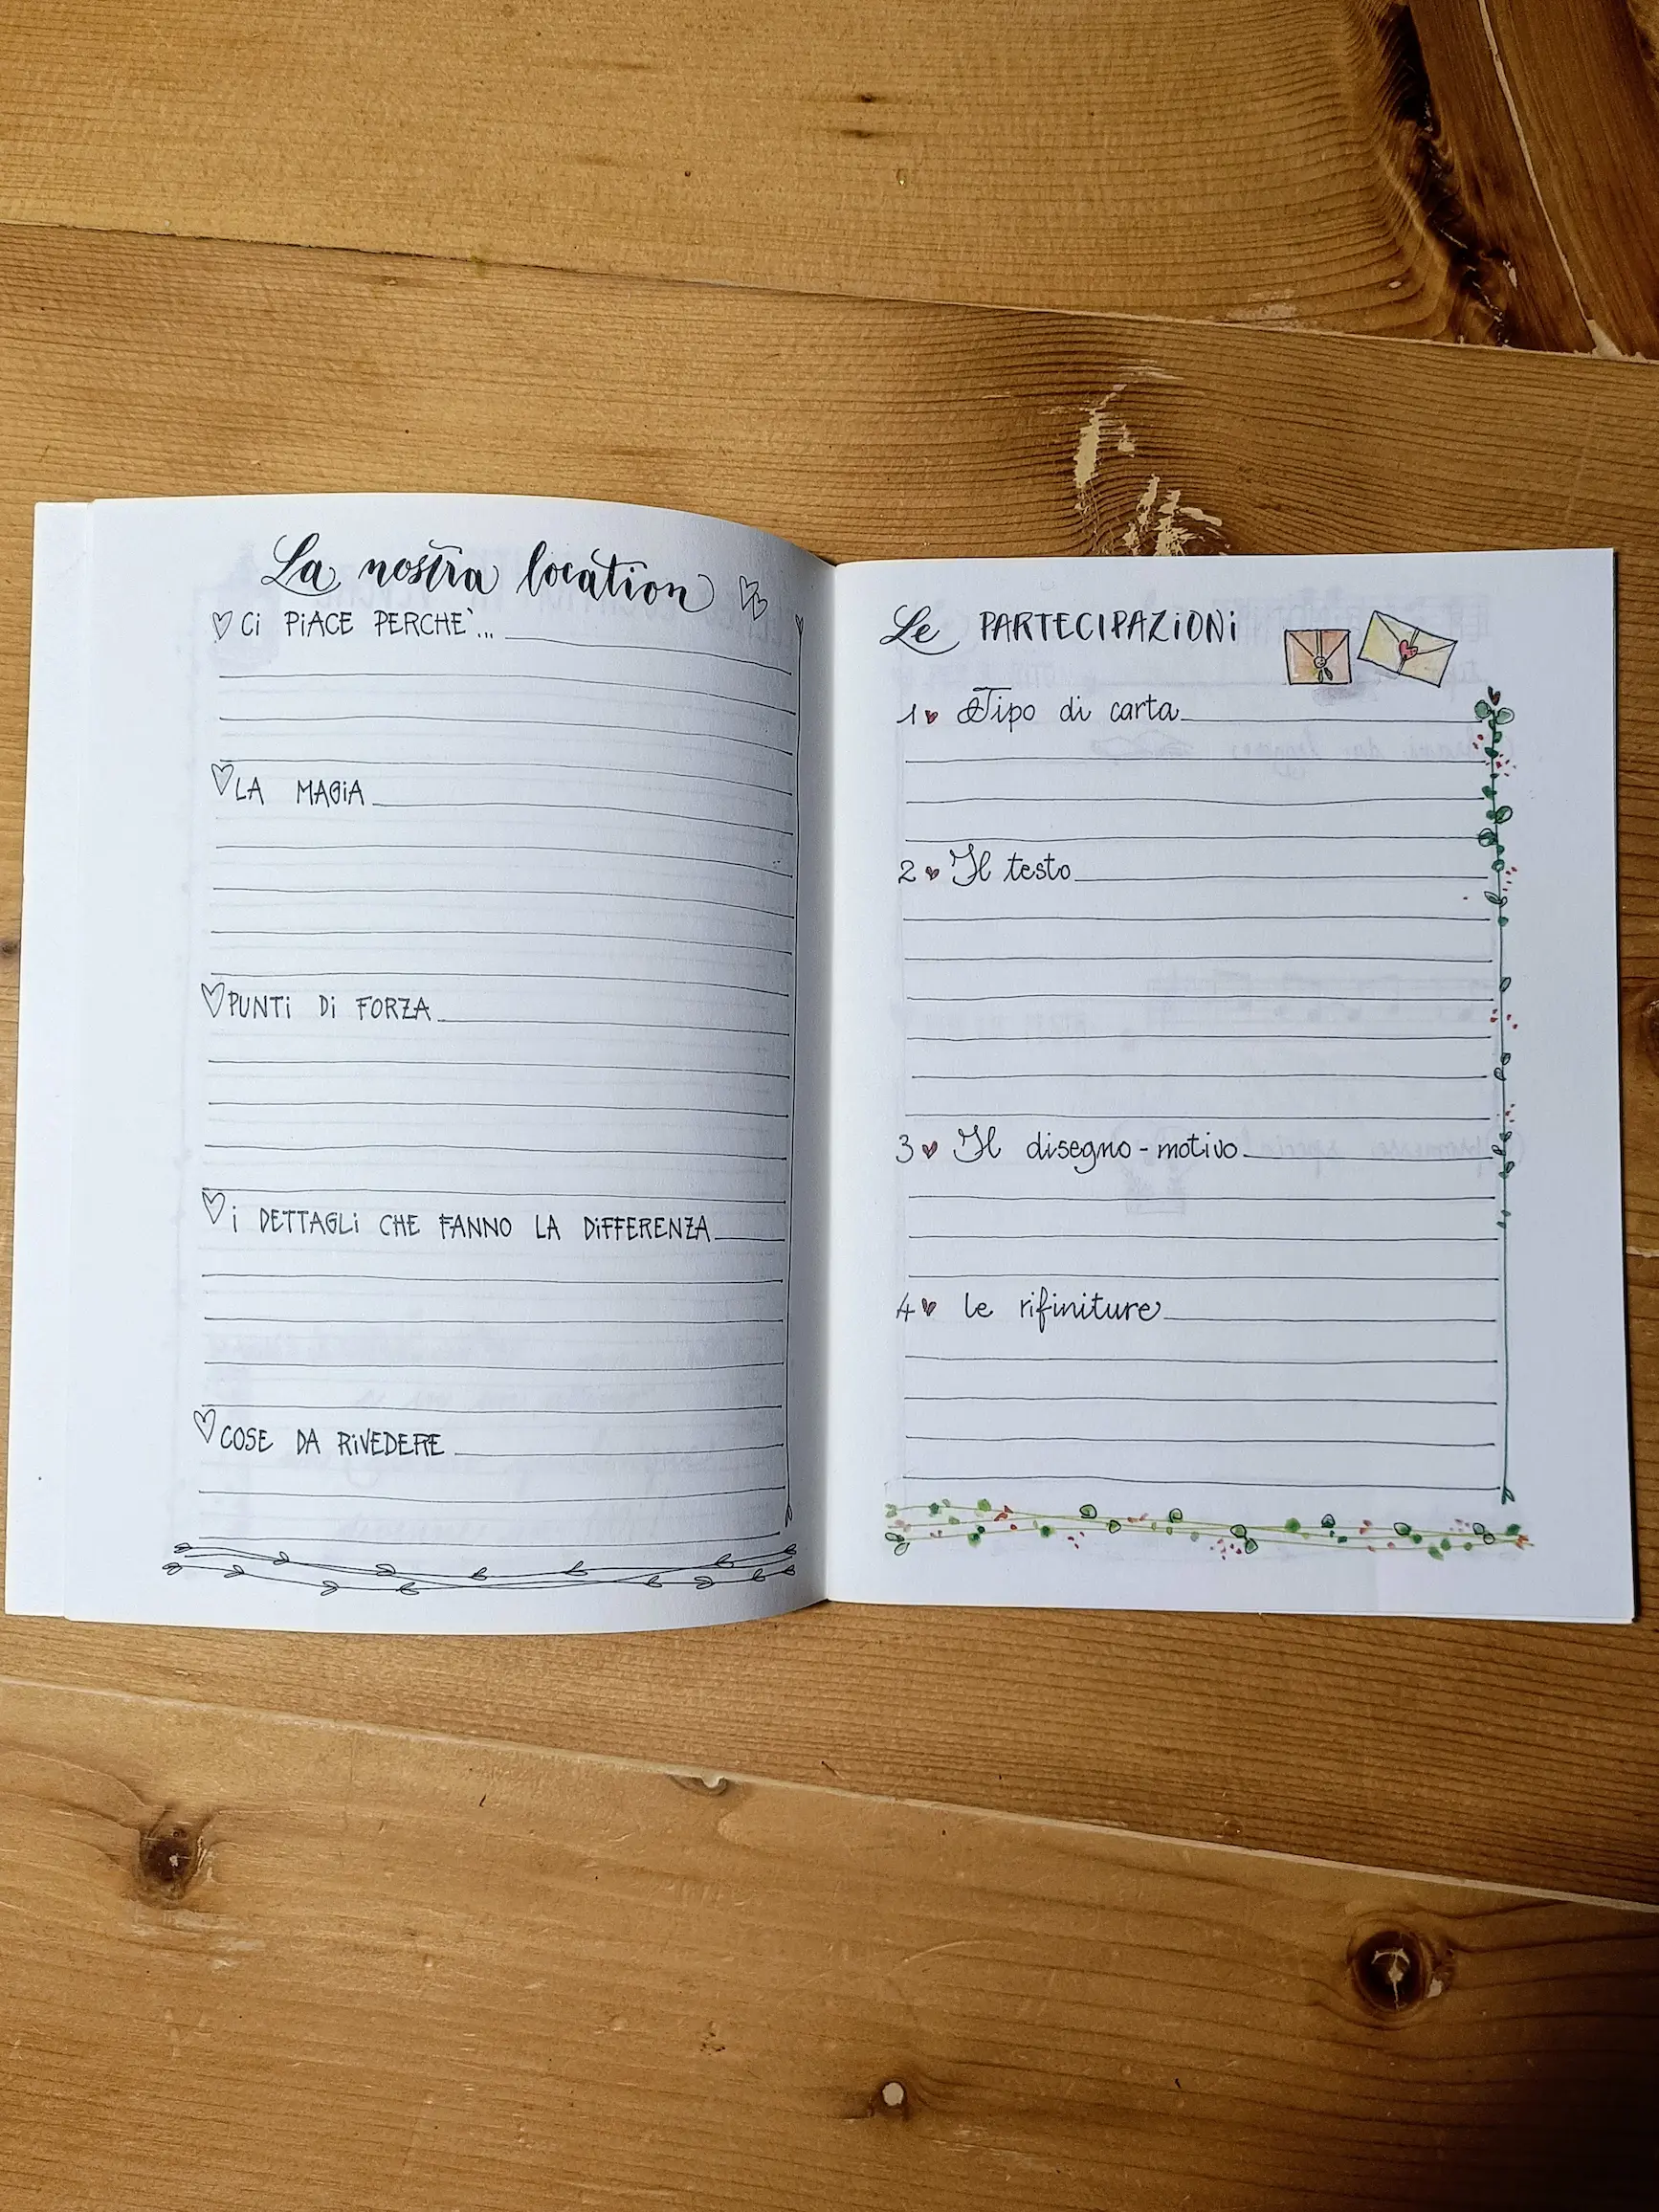 La nostra location
Ci PiACE PERCHE`...
LA MAGiA
PUNTi Di FORZA
i DETTAGLi CHE FANNO LA DiFFERENZA
COSE DA RiVEDERE
Le PARTECIPAZiONi
1 Tipo di carta
2 Il testo
3 Il disegno-motivo
4 le rifiniture